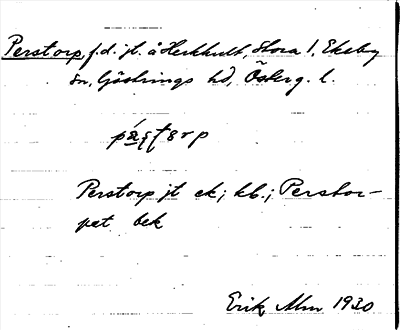 Perstorp, f.d. jt. å Herkhult, Stora 1, Ekeby
sn, Göstrings hd, Österg. l.
Perstorp jt ek; kb.; Perstor-
pet bek
Erik Alm 1930